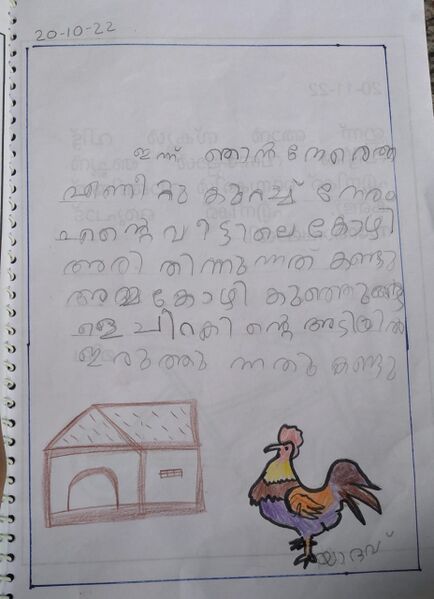 20-10-22
ഇന്ന് ഞാൻ നേരത്തെ
എണീറ്റു കുറച്ച് നേരം
എന്റെ വീട്ടിലെ കോഴി
അരി തിന്നുന്നത് കണ്ടു
അമ്മ കോഴി കുഞ്ഞുങ്ങ
ളെ ചിറകി ന്റെ അടിയിൽ
ഇരുത്തു ന്നതും കണ്ടു
യാദവ്